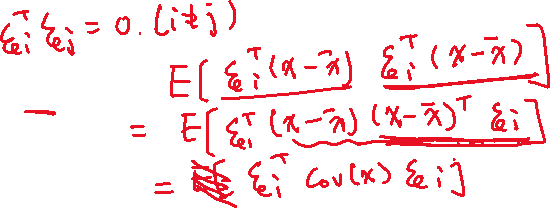 ξᵢᵀ ξⱼ = 0. (i ≠ j)
E[ ξᵢᵀ (x - x̄) ξᵢᵀ (x - x̄) ]
— = E[ ξᵢᵀ (x - x̄) (x - x̄)ᵀ ξᵢ ]
= ξᵢᵀ Cov(x) ξᵢ ]